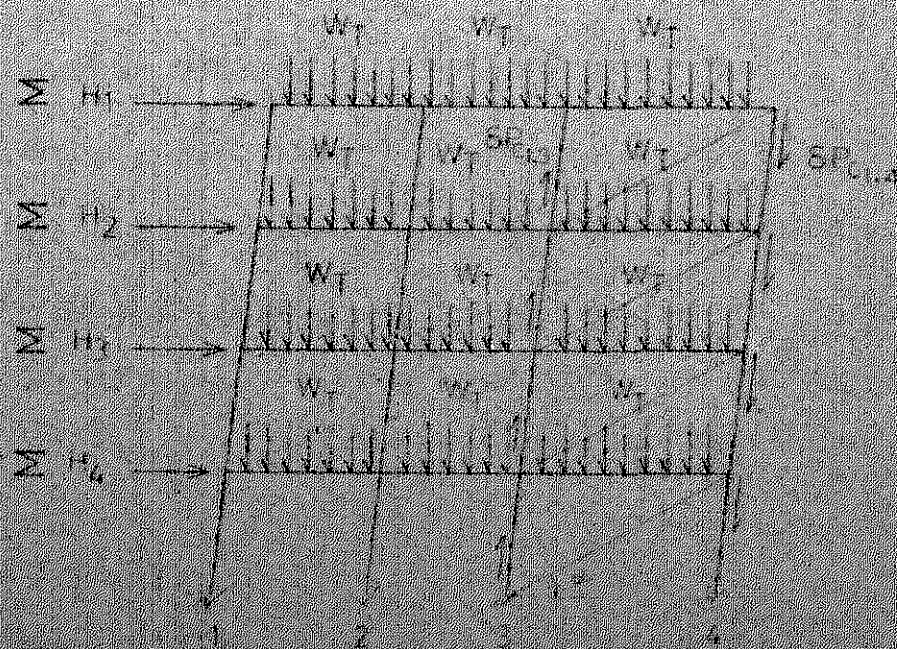 W_T W_T W_T
Σ H1
W_T W_T δP_C13 W_T δP_C1,4
Σ H2
W_T W_T W_T
Σ H3
W_T W_T W_T
Σ H4
1 2 3 4